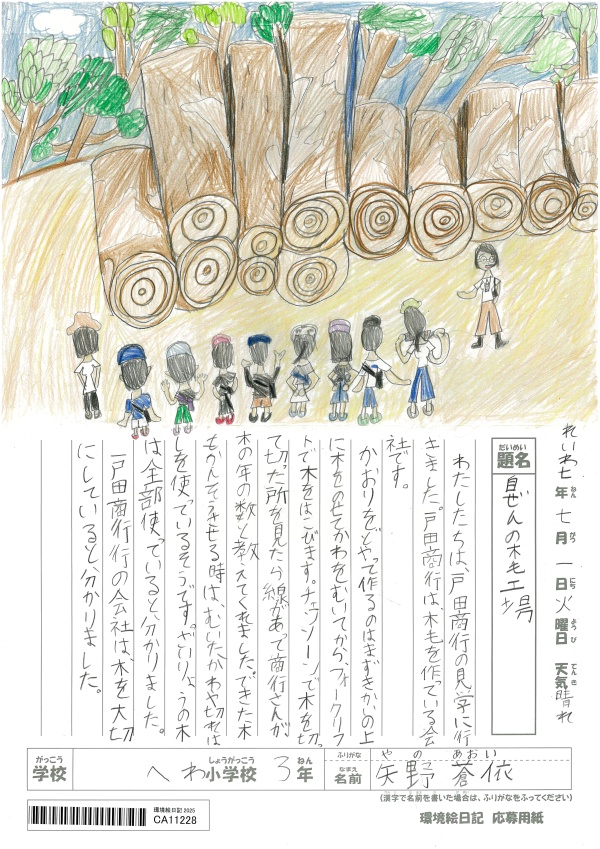 れいわ七年七月一日火曜日 天気晴れ
題名 自ぜんの木毛工場
わたしたちは、戸田商行の見学に行
きました。戸田商行は、木毛を作っている会
社です。
かおりをどやって作るのはまずきかいの上
に木をのせてかわをむいてから、フォークリフ
トで木をはこびます。チェンソーンで木を切っ
て切った所を見たら線があって商行さんが、
木の年の数と教えてくれました。できた木
もかんそうさせる時は、むいたかわや切れは
しを使ているそうです。ざいりょうの木
は全部使っていると分かりました。
戸田商行の会社は、木を大切
にしていると、分かりました。
がっこう 学校 へいわ小学校 しょうがっこう 3年 ねん
ふりがな やの あおい
なまえ 名前 矢野 蒼依
(漢字で名前を書いた場合は、ふりがなをふってください)
環境絵日記 2025
CA11228
環境絵日記 応募用紙